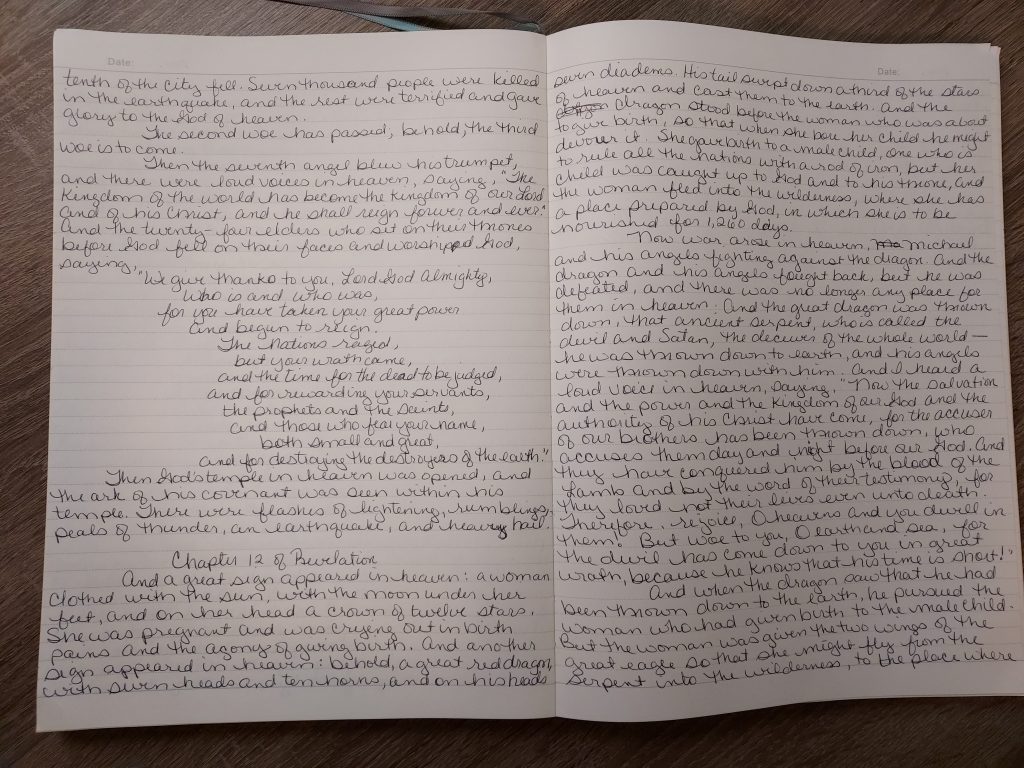 Date:
tenth of the city fell. Seven thousand people were killed
in the earthquake, and the rest were terrified and gave
glory to the God of heaven.
The second woe has passed, behold, the third
woe is to come.
Then the seventh angel blew his trumpet,
and there were loud voices in heaven, saying, "The
Kingdom of the world has become the kingdom of our Lord
and of his Christ, and he shall reign forever and ever."
And the twenty-four elders who sit on their thrones
before God fell on their faces and worshiped God,
saying,
"We give thanks to you, Lord God Almighty,
who is and who was,
for you have taken your great power
and begun to reign.
The nations raged,
but your wrath came,
and the time for the dead to be judged,
and for rewarding your servants,
the prophets and the saints,
and those who fear your name,
both small and great,
and for destroying the destroyers of the earth."
Then God's temple in heaven was opened, and
the ark of his covenant was seen within his
temple. There were flashes of lightening, rumblings,
peals of thunder, an earthquake, and heavy hail.
Chapter 12 of Revelation
And a great sign appeared in heaven: a woman
clothed with the sun, with the moon under her
feet, and on her head a crown of twelve stars.
She was pregnant and was crying out in birth
pains and the agony of giving birth. And another
sign appeared in heaven: behold, a great red dragon,
with seven heads and ten horns, and on his heads
Date:
seven diadems. His tail swept down a third of the stars
of heaven and cast them to the earth. And the
dragon stood before the woman who was about
to give birth, so that when she bore her child he might
devour it. She gave birth to a male child, one who is
to rule all the nations with a rod of iron, but her
child was caught up to God and to his throne, and
the woman fled into the wilderness, where she has
a place prepared by God, in which she is to be
nourished for 1,260 days.
Now war arose in heaven, Michael
and his angels fighting against the dragon. And the
dragon and his angels fought back, but he was
defeated, and there was no longer any place for
them in heaven. And the great dragon was thrown
down, that ancient serpent, who is called the
devil and Satan, the deceiver of the whole world—
he was thrown down to earth, and his angels
were thrown down with him. And I heard a
loud voice in heaven, saying, "Now the salvation
and the power and the kingdom of our God and the
authority of his Christ have come, for the accuser
of our brothers has been thrown down, who
accuses them day and night before our God. And
they have conquered him by the blood of the
Lamb and by the word of their testimony, for
they loved not their lives even unto death.
Therefore, rejoice, O heavens and you dwell in
them! But woe to you, O earth and sea, for
the devil has come down to you in great
wrath, because he knows that his time is short!"
And when the dragon saw that he had
been thrown down to the earth, he pursued the
woman who had given birth to the male child.
But the woman was given the two wings of the
great eagle so that she might fly from the
serpent into the wilderness, to the place where